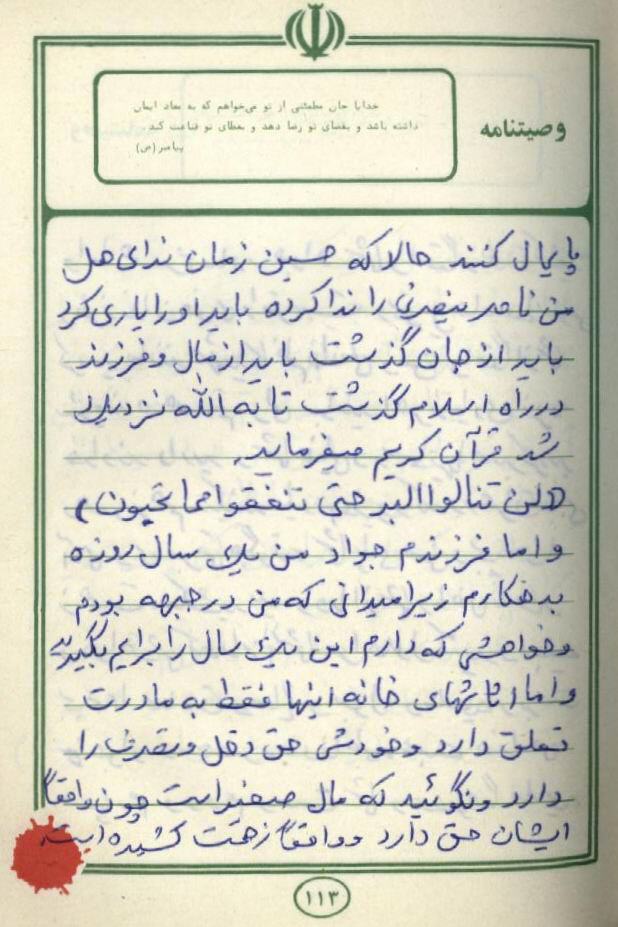 وصیتنامه
خدایا جان مطمئنی از تو می‌خواهم که به معاد ایمان
داشته باشد و بقضای تو رضا دهد و بعطای تو قناعت کند
پیامبر (ص)
پایمال کنند حالا که حسین زمان ندای هل
من ناصر ینصرنی را ندا کرده باید او را یاری کرد
باید از جان گذشت باید از مال و فرزند
در راه اسلام گذشت تا به الله نزدیک
شد قرآن کریم میفرماید.
(لن تنالوا البر حتی تنفقوا مما تحبون)
و اما فرزندم جواد من یک سال روزه
بدهکارم زیرا میدانی که من در جبهه بودم
و خواهشی که دارم این یک سال را برایم بگیرید
و اما اثاثهای خانه اینها فقط به مادرت
تعلق دارد و خودش حق دخل و تصرف را
دارد و نگوئید که مال صغیر است چون واقعاً
ایشان حق دارد و واقعاً زحمت کشیده است
۱۱۳